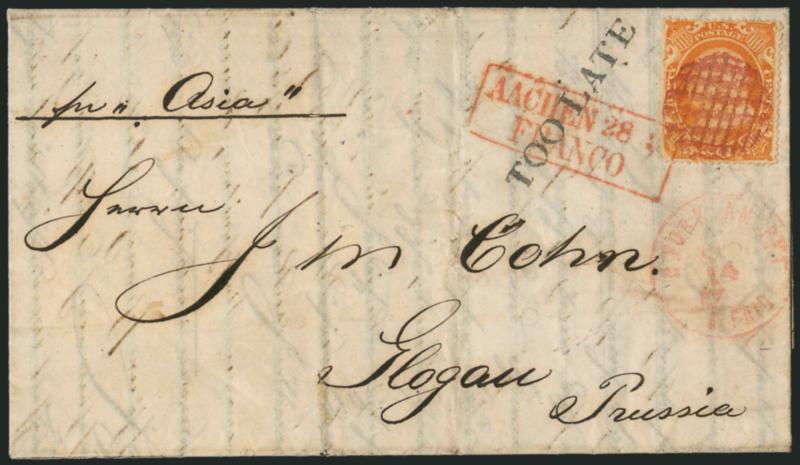 U.S.
POSTAGE
TOO LATE
AACHEN 28
FRANCO
"Asia"
Herrn
J M Cohn.
Glogau
Prussia
YORK AM. PKT.
PAID